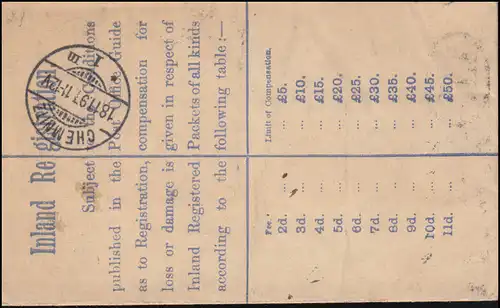 Inland Registration
Subject to the Conditions
published in the Post Office Guide
as to Registration, compensation for
loss or damage is given in respect of
Inland Registered Packets of all kinds
according to the following table:—
Fee. Limit of Compensation.
2d. ... ... £5.
3d. ... ... £10.
4d. ... ... £15.
5d. ... ... £20.
6d. ... ... £25.
7d. ... ... £30.
8d. ... ... £35.
9d. ... ... £40.
10d. ... ... £45.
11d. ... ... £50.
CHEMNITZ
18.11.97. 11-12V.
* 1 m